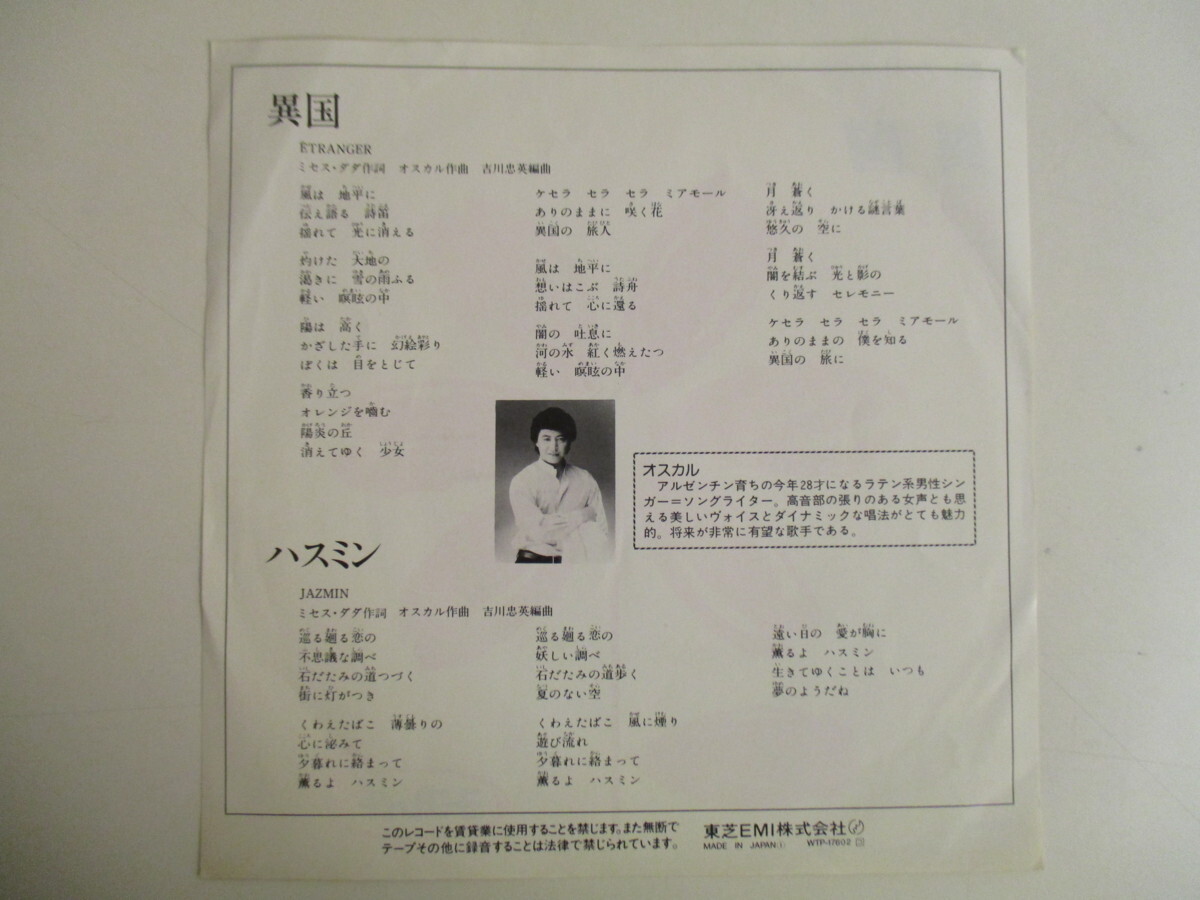 異国
ÉTRANGER
ミセス・ダダ作詞　オスカル作曲　吉川忠英編曲
風は　地平に
伝え語る　詩笛
揺れて　光に消える
灼けた　大地の
渇きに　雪の雨ふる
軽い　瞑眩の中
陽は　高く
かざした手に　幻絵彩り
ぼくは　目をとじて
香り立つ
オレンジを噛む
陽炎の丘
消えてゆく　少女
ケセラ　セラ　セラ　ミアモール
ありのままに　咲く花
異国の　旅人
風は　地平に
想いはこぶ　詩舟
揺れて　心に還る
闇の　吐息に
河の水　紅く燃えたつ
軽い　瞑眩の中
月　蒼く
冴え返り　かける謎言葉
悠久の　空に
月　蒼く
闇を結ぶ　光と影の
くり返す　セレモニー
ケセラ　セラ　セラ　ミアモール
ありのままの　僕を知る
異国の　旅に
オスカル
アルゼンチン育ちの今年28才になるラテン系男性シン
ガー＝ソングライター。高音部の張りのある女声とも思
える美しいヴォイスとダイナミックな唱法がとても魅力
的。将来が非常に有望な歌手である。
ハスミン
JAZMIN
ミセス・ダダ作詞　オスカル作曲　吉川忠英編曲
巡る廻る恋の
不思議な調べ
石だたみの道つづく
街に灯がつき
くわえたばこ　薄曇りの
心に泌みて
夕暮れに絡まって
薫るよ　ハスミン
巡る廻る恋の
妖しい調べ
石だたみの道歩く
夏のない空
くわえたばこ　風に煙り
遊び流れ
夕暮れに絡まって
薫るよ　ハスミン
遠い日の　愛が胸に
薫るよ　ハスミン
生きてゆくことは　いつも
夢のようだね
このレコードを賃貸業に使用することを禁じます。また無断で
テープその他に録音することは法律で禁じられています。
東芝EMI株式会社
MADE IN JAPAN WTP-17602